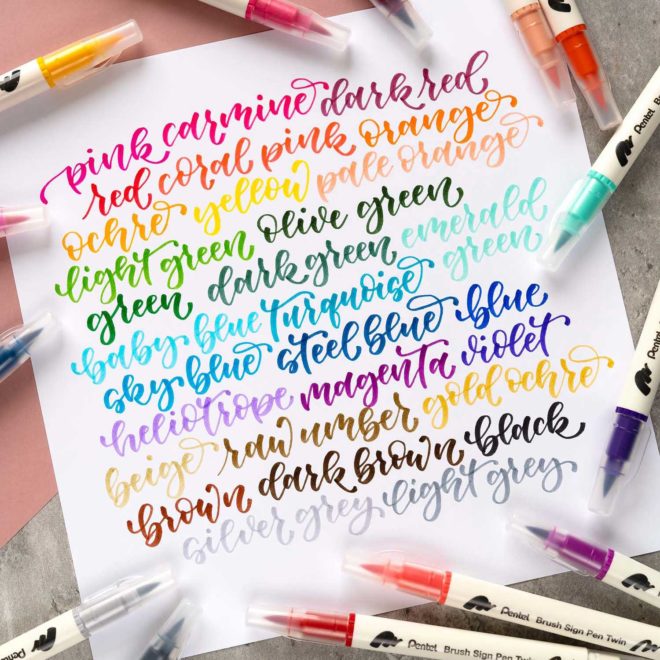 pink carmine dark red
red coral pink orange
ochre yellow pale orange
light green olive green
green dark green emerald green
baby blue turquoise
sky blue steel blue blue
heliotrope magenta violet
beige raw umber gold ochre
brown dark brown black
silver grey light grey
Pentel
Pentel
Pentel
Pentel Brush Sign Pen Twin
Pentel Brush Sign Pen Twin